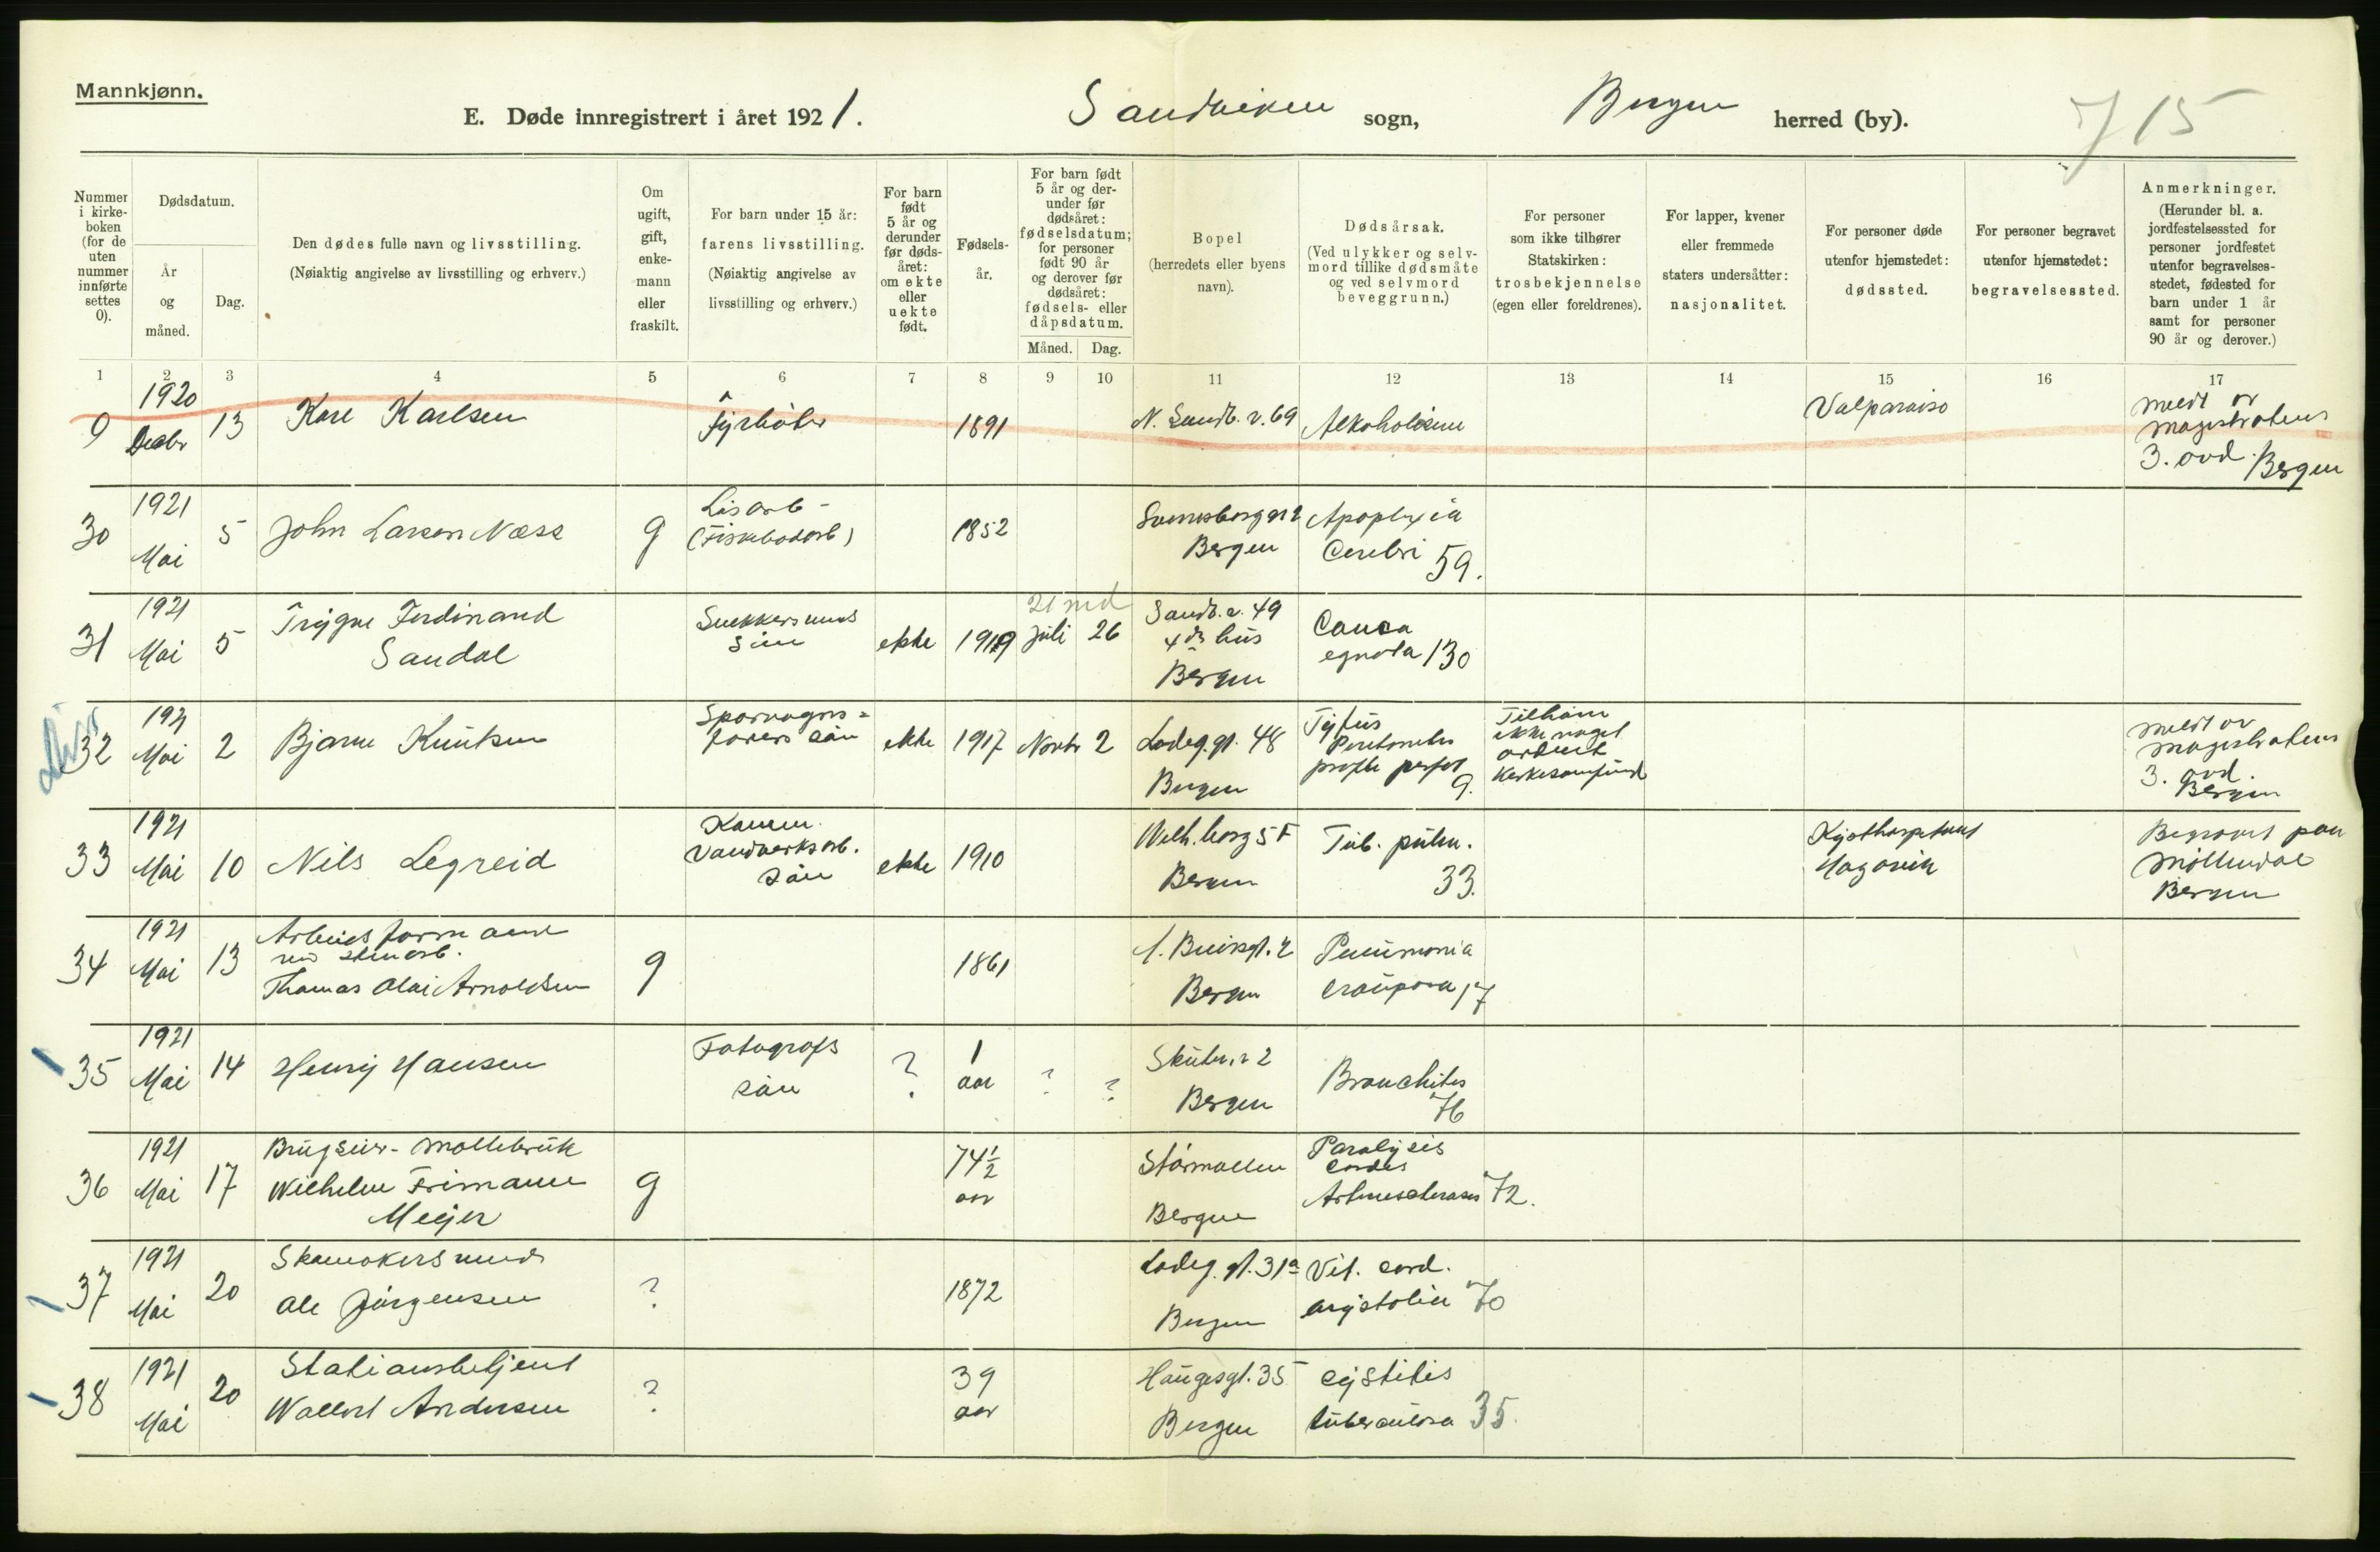 Mannkjønn.
E. Døde innregistrert i året 1921. Sandviken sogn, Bergen herred (by). 715
Nummer i kirkeboken (for de uten nummer innførte settes 0).
Dødsdatum.
År og måned.
Dag.
Den dødes fulle navn og livsstilling.
(Nøiaktig angivelse av livsstilling og erhverv.)
Om ugift, gift, enkemann eller fraskilt.
For barn under 15 år:
farens livsstilling.
(Nøiaktig angivelse av livsstilling og erhverv.)
For barn født 5 år og derunder før dødsåret: om ekte eller uekte født.
Fødselsår.
For barn født 5 år og derunder før dødsåret: fødselsdatum; for personer født 90 år og derover før dødsåret: fødsels- eller dåpsdatum.
Måned. Dag.
Bopel
(herredets eller byens navn).
Dødsårsak.
(Ved ulykker og selvmord tillike dødsmåte og ved selvmord beveggrunn.)
For personer som ikke tilhører Statskirken: trosbekjennelse (egen eller foreldrenes).
For lapper, kvener eller fremmede staters undersåtter: nasjonalitet.
For personer døde utenfor hjemstedet: dødssted.
For personer begravet utenfor hjemstedet: begravelsessted.
Anmerkninger.
(Herunder bl. a. jordfestelsessted for personer jordfestet utenfor begravelsesstedet, fødested for barn under 1 år samt for personer 90 år og derover.)
1 2 3 4 5 6 7 8 9 10 11 12 13 14 15 16 17
9 1920 Decbr 13 Kare Karlsen Fyrbøter 1891 N. Sandv. v. 69 Alkoholisme Valparaiso meldt av magistratens 3. avd. Bergen
30 1921 Mai 5 John Larsen Næss g Lisarb - (Fiskebodarb) 1852 Bergen Apoplexia Cerebri 59.
31 1921 Mai 5 Trygve Ferdinand Sandal Snekkersvends søn ekte 1919 21 md Juli 26 Sandv. v. 49 hus Bergen Causa ignota 130
32 1921 Mai 2 Bjarne Knutsen Sporvognsførers søn ekte 1917 Novbr 2 Ladeg. gt. 48 Bergen Tyfus 9. Tilhører ikke noget ordnet kirkesamfund meldt av magistratens 3. avd. Bergen
33 1921 Mai 10 Nils Legreid Komm. Vandverksarb. søn ekte 1910 Wilh. borg 5 F Bergen Tub. pulm. 33. Kysthospitalet Hagavik Begravet paa Møllendal Bergen
34 1921 Mai 13 Arbeidsformand ved stenarb. Thomas Olai Arnoldsen g 1861 Bergen Pneumonia crouposa 17
35 1921 Mai 14 Henry Hansen Fotografs søn ? 1 aar ? ? Skutev. v 2 Bergen Bronchitis 76
36 1921 Mai 17 Brugseier - Møllebruk Wilhelm Frimann Meyer g 74½ aar Storemøllen Bergen Paralysis cordis Arteriosclerosis 72.
37 1921 Mai 20 Skomakersvend Ole Jørgensen ? 1872 Ladeg. gt. 31a Bergen Vit. cord. asystolia 70
38 1921 Mai 20 Stationsbetjent Wallert Andersen ? 39 aar Haugesgt. 35 Bergen Cystitis tuberculosa 35.